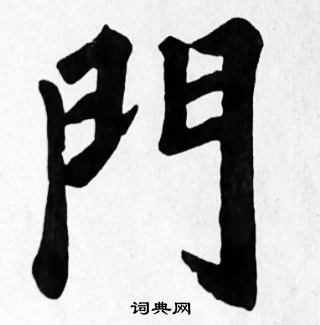 門
词典网